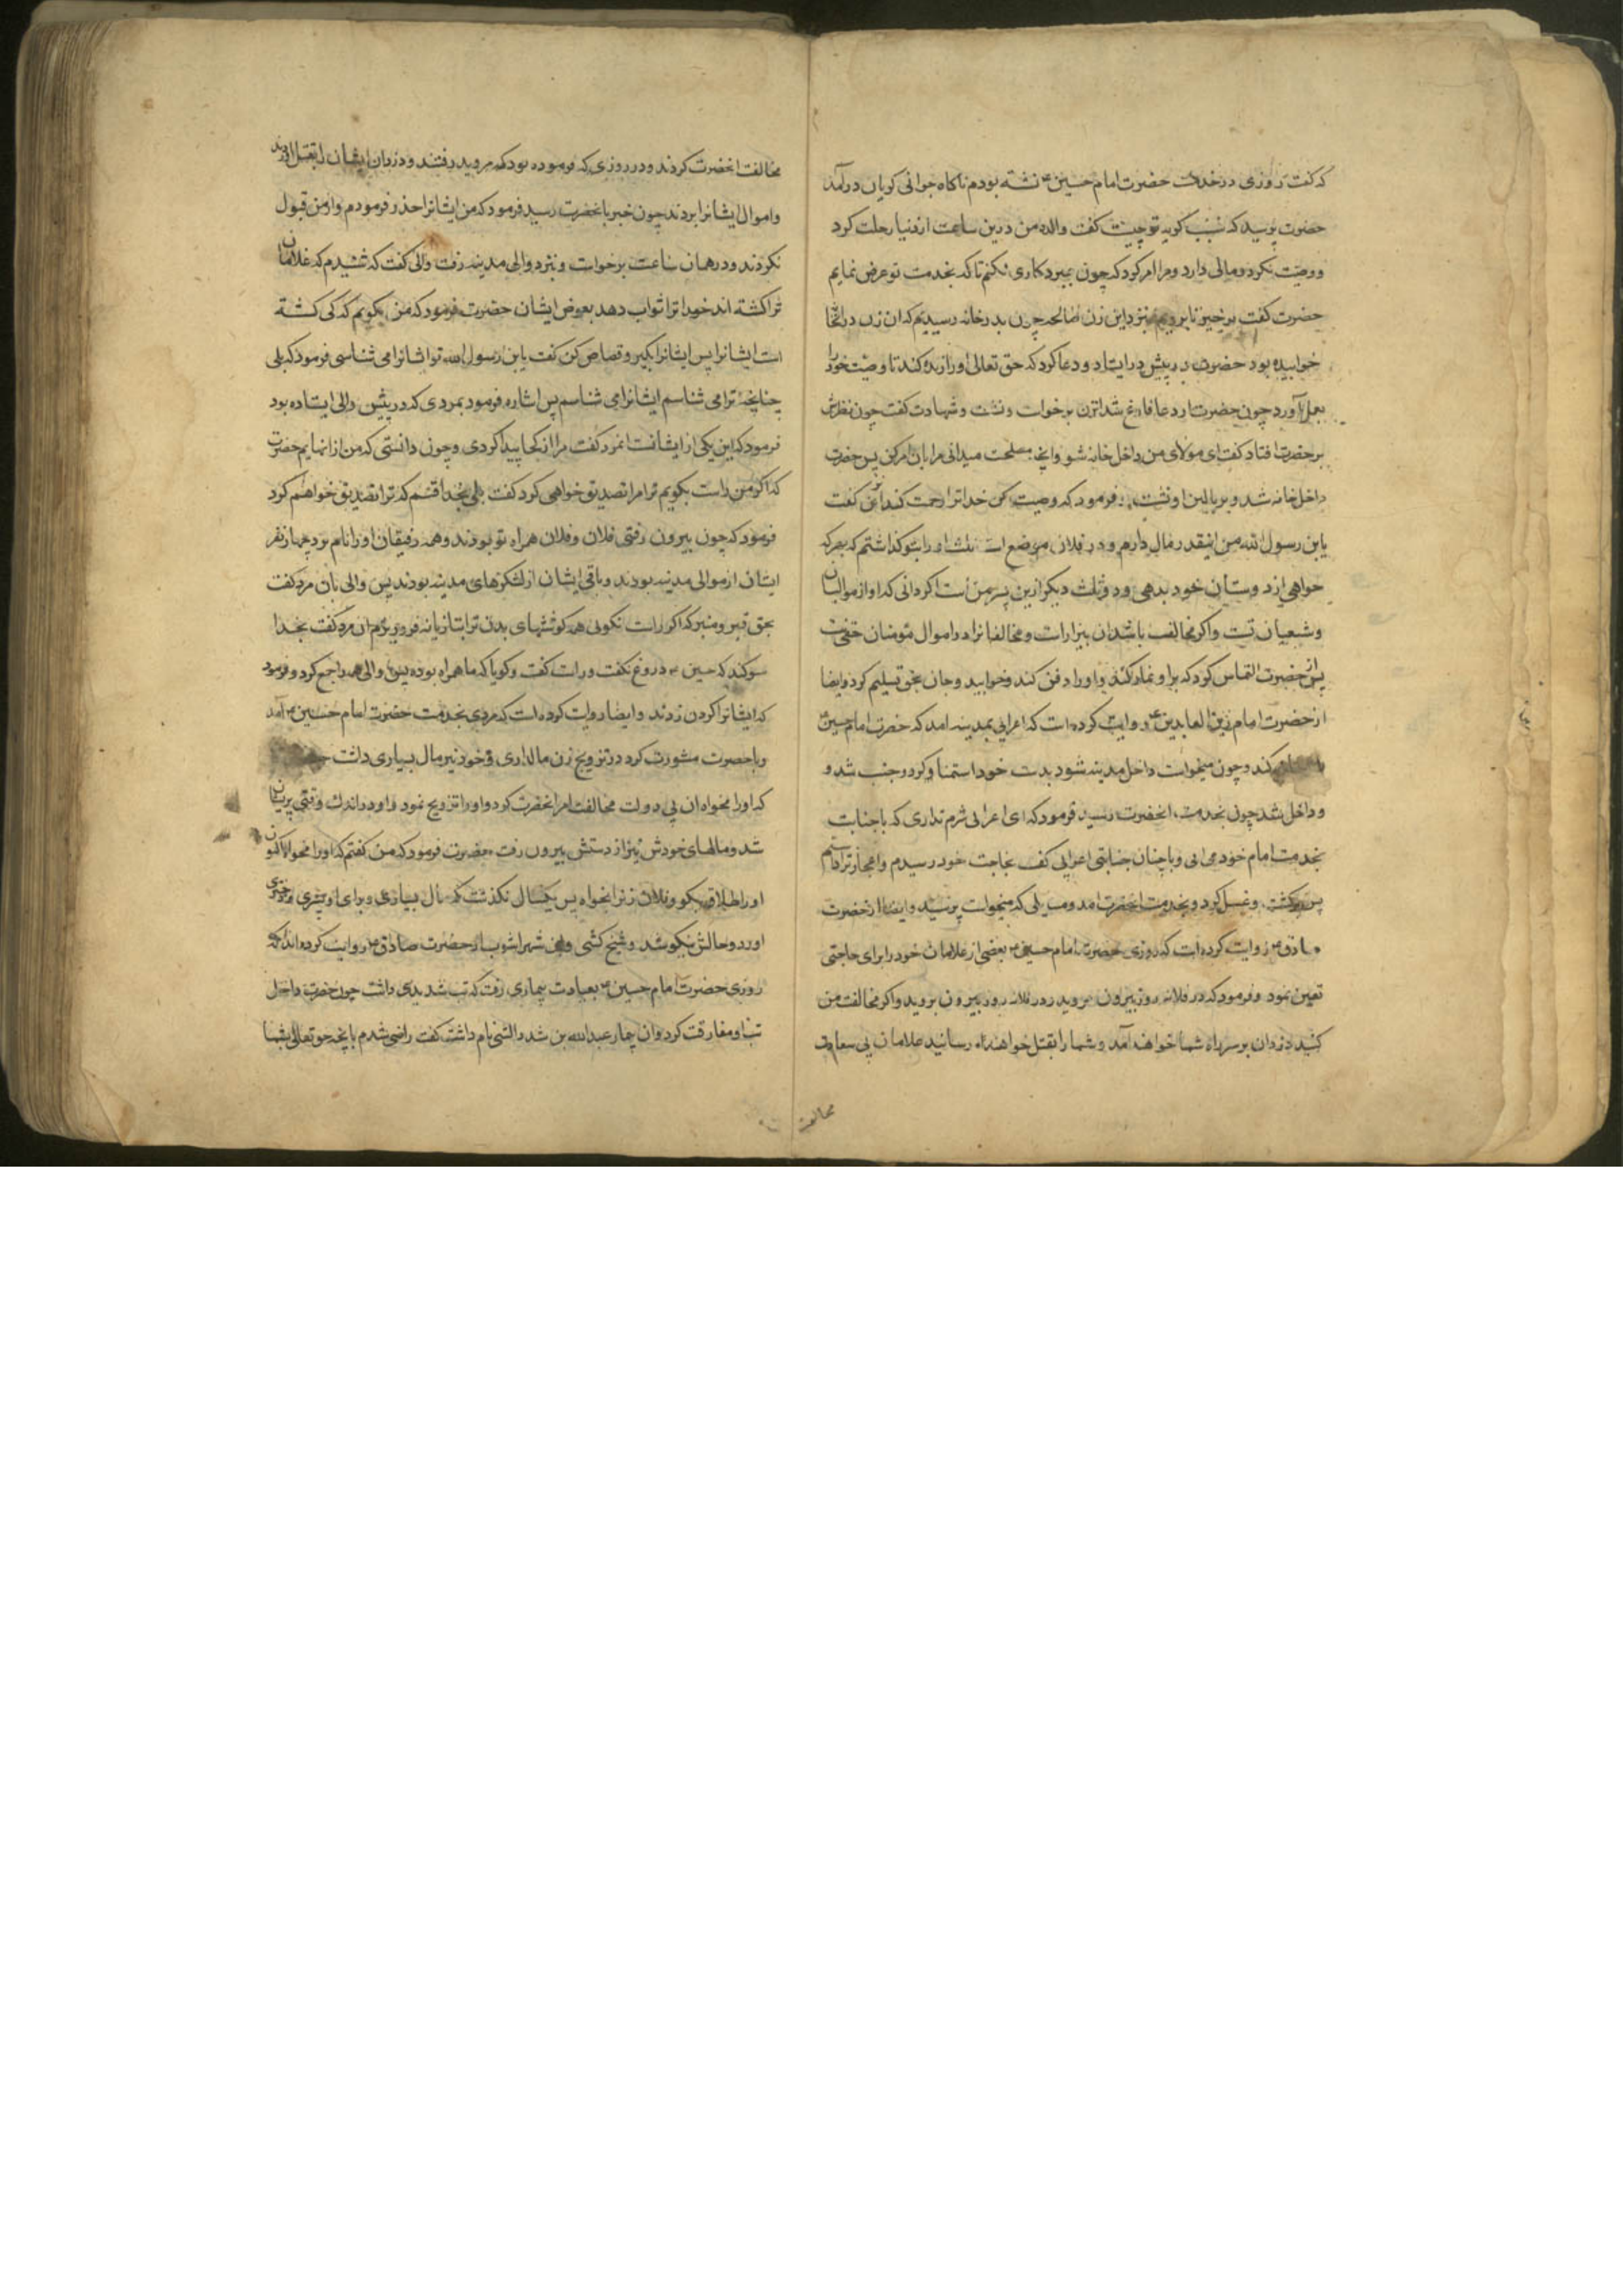 که کفت روزی در خدمت حضرت امام حسین ع نشسته بودم ناکاه جوانی کریان درآمد
حضرت پرسید که سبب کریه تو چیست کفت والده من درین ساعت از دنیا رحلت کرد
و وصیت نکرد و مالی دارد و مرا امر کرد که چون بمیرد کاری نکنم تا که بخدمت تو عرض نمایم
حضرت کفت برخیز تا برویم بنزد این زن صالحه چون بدر خانه رسیدیم که ان زن در انجا
خوابیده بود حضرت در پیش در ایستاد و دعا کرد که حق تعالی او را زنده کند تا وصیت خود را
بعمل آورد چون حضرت از دعا فارغ شد انزن برخواست و نشست و شهادت کفت چون نظرش
بر حضرت افتاد کفت ای مولای من داخل خانه شو و انچه مصلحت میدانی مرا بان امر کن پس حضرت
داخل خانه شد و بر بالین او نشست فرمود که وصیت کن خدا ترا رحمت کند ان زن کفت
یابن رسول الله من اینقدر مال دارم و در فلان موضع است ثلث او را بتو کذاشتم که بهر که
خواهی از دوستان خود بدهی و دو ثلث دیکر ازین پسر من است اکر دانی که او از موالیان
و شیعیان تست و اکر مخالف باشد ان بیزار است و مخالفانرا در اموال مؤمنان حقی نیست
پس از حضرت التماس کرد که بر او نماز کند و او را دفن کند و خوابید و جان بحق تسلیم کرد و ایضا
از حضرت امام زین العابدین ع روایت کرده است که اعرابی بمدینه امد که حضرت امام حسین ع
کند و چون میخواست داخل مدینه شود بدست خود استمنا کرد و جنب شد و
و داخل شد چون بخدمت انحضرت رسید فرمود که ای اعرابی شرم نداری که با جنابت
بخدمت امام خود می ائی و با چنان جنابتی اعرابی کفت بحاجت خود رسیدم و اعجاز ترا دانستم
پس برکشت و غسل کرد و بخدمت انحضرت امد و مسایلی که میخواست پرسید و ایضا از حضرت
صادق ع روایت کرده است که روزی حضرت امام حسین ع بعضی از غلامان خود را برای حاجتی
تعیین نمود و فرمود که در فلان روز بیرون مروید و در فلان روز بیرون بروید و اکر مخالفت من
کنید دزدان بر سر راه شما خواهند آمد و شما را بقتل خواهند رسانید غلامان بی سعادت
مخالفت
مخالفت انحضرت کردند و در روزی که فرموده بود که مروید رفتند و دزدان ایشان را بقتل اوردند
و اموال ایشانرا بردند چون خبر بانحضرت رسید فرمود که من ایشانرا حذر فرمودم و از من قبول
نکردند و در همان ساعت برخواست و بنزد والی مدینه رفت والی کفت که شنیدم که غلامان
ترا کشته اند خدا ترا ثواب دهد بعوض ایشان حضرت فرمود که من بکویم که کی کشته
است ایشانرا پس ایشانرا بکیر و قصاص کن کفت یابن رسول الله تو ایشانرا می شناسی فرمود که بلی
چنانچه ترا می شناسم ایشانرا می شناسم پس اشاره فرمود بمردی که در پیش والی ایستاده بود
فرمود که این یکی از ایشانست انمرد کفت مرا از کجا پیدا کردی و چون دانستی که من از انهایم حضرت
که اکر من راست بکویم ترا مرا تصدیق خواهی کرد کفت بلی بخدا قسم که ترا تصدیق خواهم کرد
فرمود که چون بیرون رفتی فلان و فلان همراه تو بودند و همه رفیقان او را نام برد چهار نفر
ایشان از موالی مدینه بودند و باقی ایشان از لشکرهای مدینه بودند پس والی بان مرد کفت
بحق قبر و منبر که اکر راست نکوئی همه کوشتهای بدن ترا بتازیانه فرو ریزم ان مرد کفت بخدا
سوکند که حسین ع دروغ نکفت و راست کفت و کویا که ما همراه بوده پس والی همه را جمع کرد و فرمود
که ایشانرا کردن زدند و ایضا روایت کرده است که مردی بخدمت حضرت امام حسین ع آمد
و باحضرت مشورت کرد در تزویج زن مالداری و خود نیز مال بسیاری داشت
که او را مخواه ان بی دولت مخالفت امر انحضرت کرد و او را تزویج نمود و او در اندک وقتی پریشان
شد و مالهای خودش نیز از دستش بیرون رفت حضرت فرمود که من کفتم که او را مخواه اکنون
او را طلاق بکو و فلان زنرا بخواه پس یکسال نکذشت که مال بسیاری و برای او پسری و دختری
اورد و حالش نیکو شد و شیخ کشی و ابن شهراشوب از حضرت صادق ع روایت کرده اند که
روزی حضرت امام حسین ع بعیادت بیماری رفت که تب شدیدی داشت چون حضرت داخل
تب او مفارقت کرد و ان بیمار عبدالله بن شداد لیثی نام داشت کفت راضی شدم بانچه حق تعالی بشما